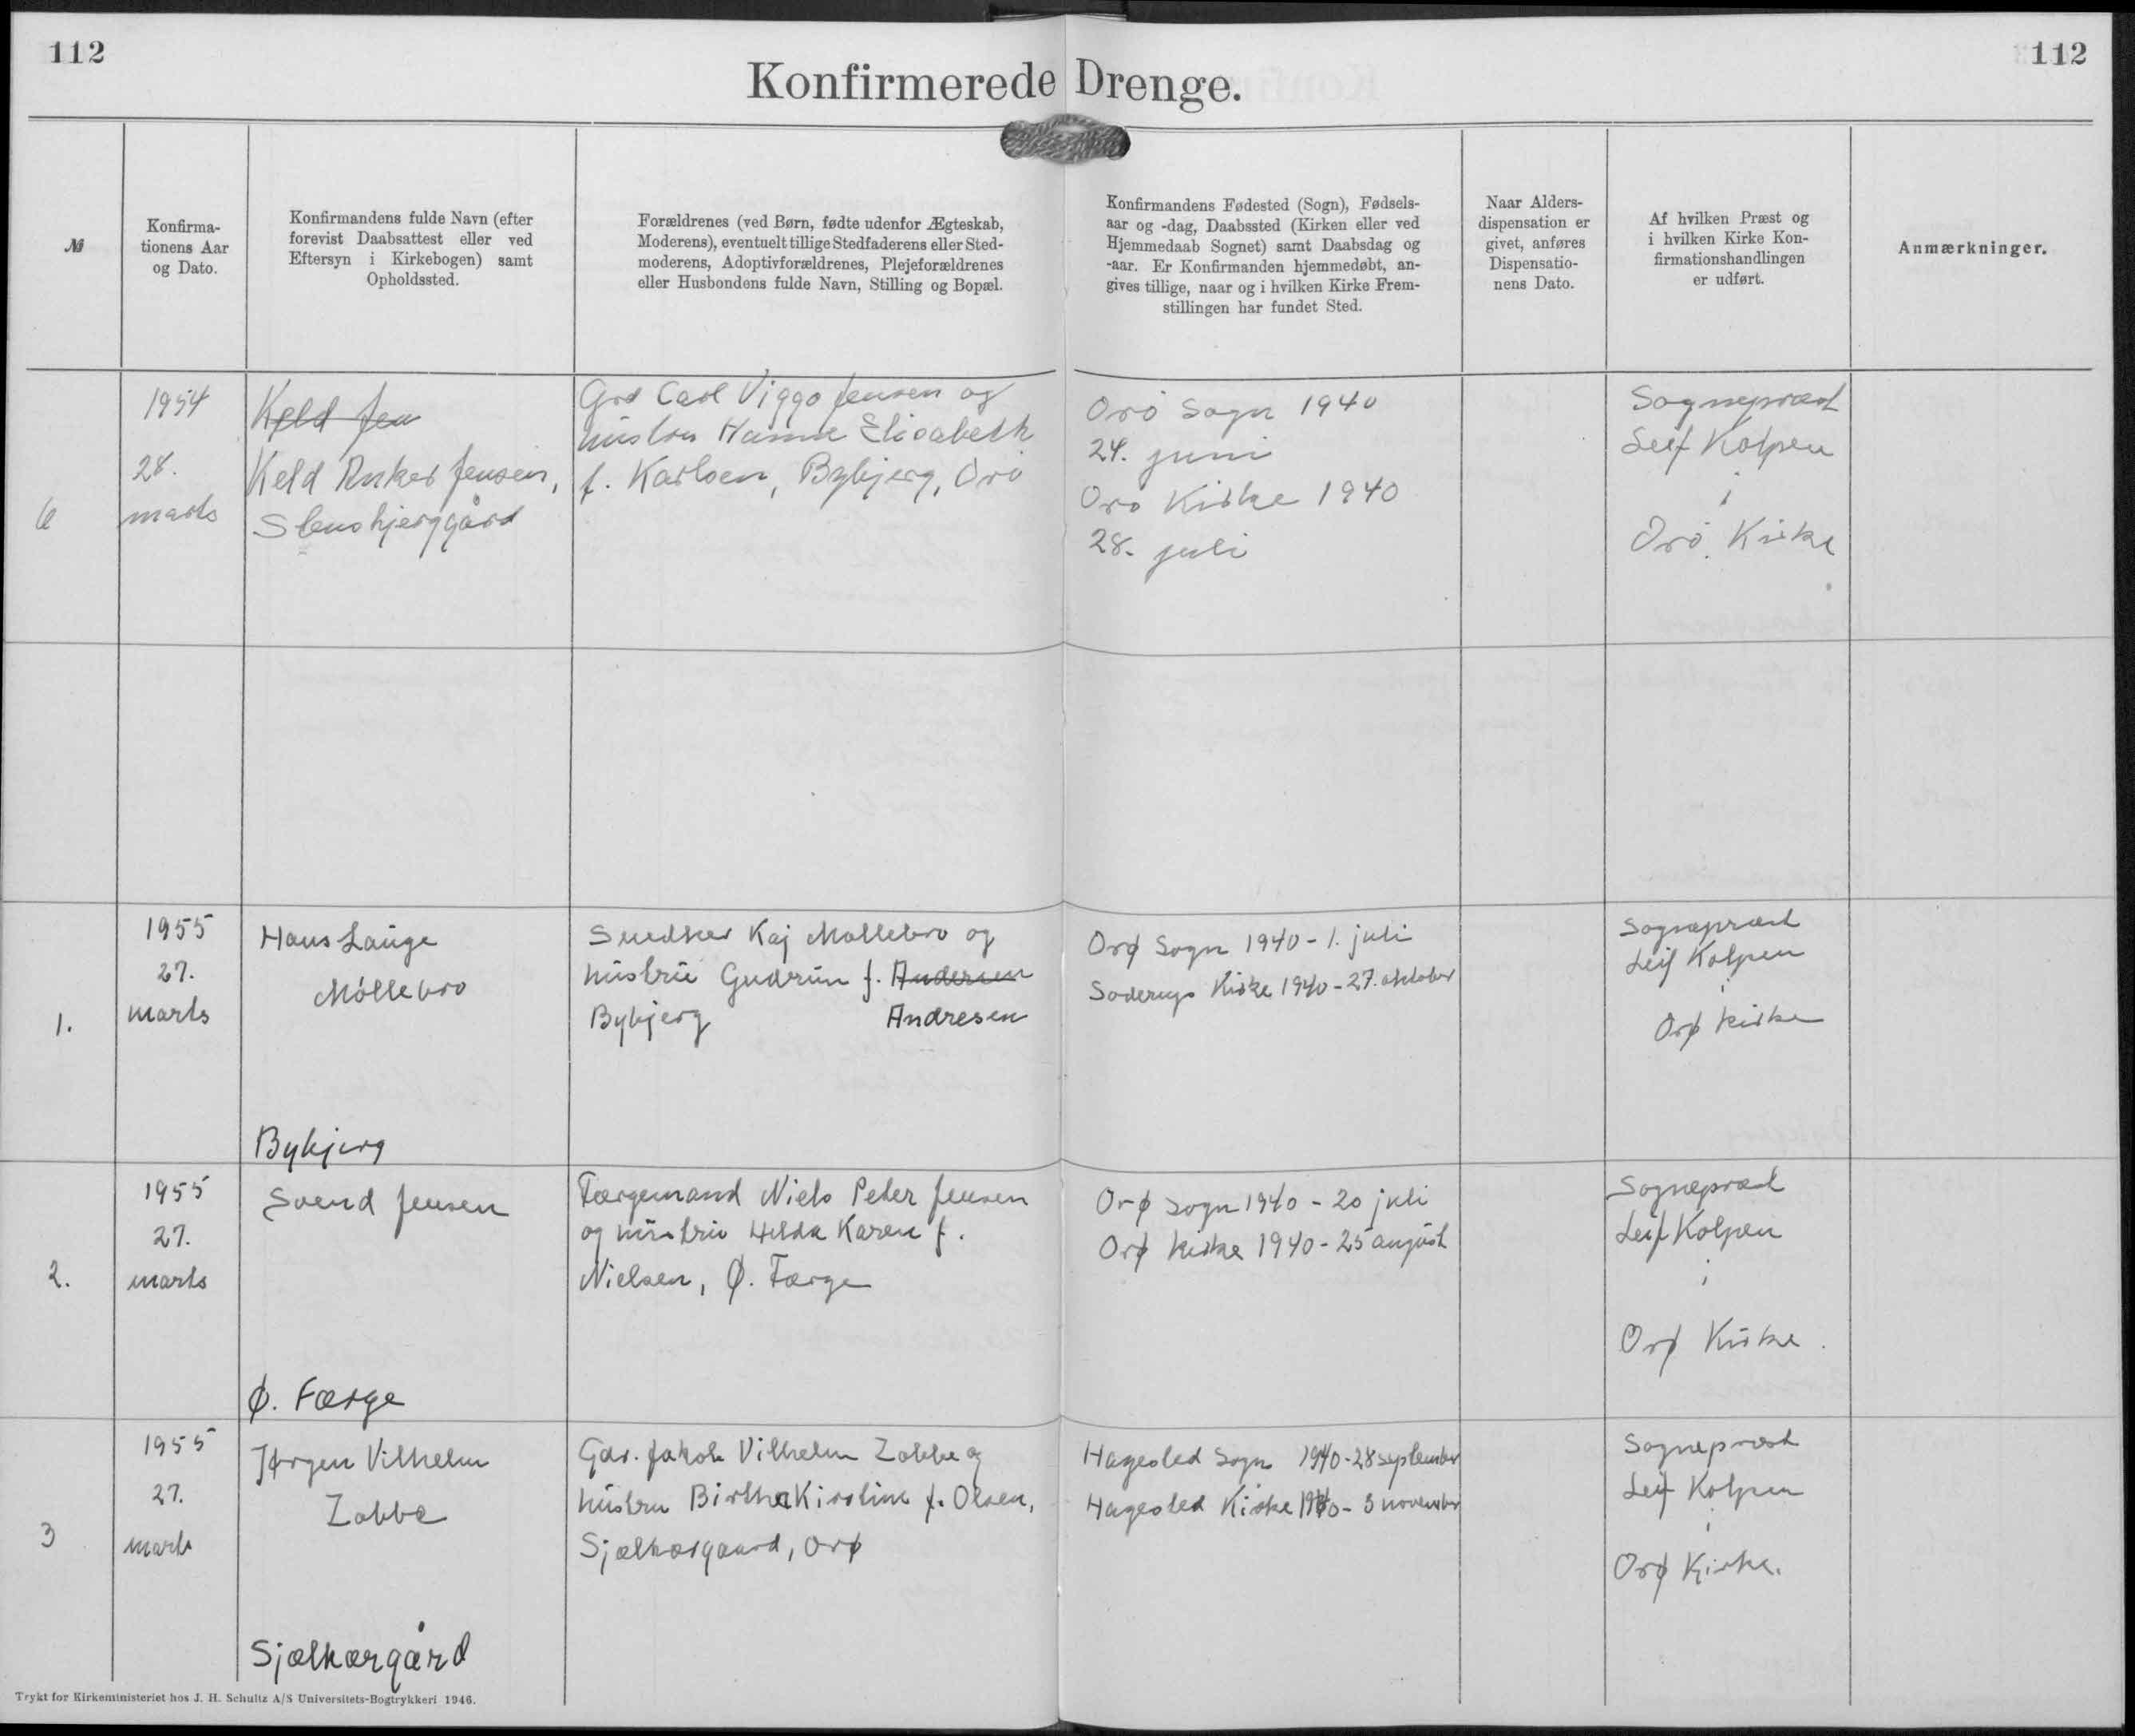 112
112
Konfirmerede Drenge.
№
Konfirma-
tionens Aar
og Dato.
Konfirmandens fulde Navn (efter
forevist Daabsattest eller ved
Eftersyn i Kirkebogen) samt
Opholdssted.
Forældrenes (ved Børn, fødte udenfor Ægteskab,
Moderens), eventuelt tillige Stedfaderens eller Sted-
moderens, Adoptivforældrenes, Plejeforældrenes
eller Husbondens fulde Navn, Stilling og Bopæl.
Konfirmandens Fødested (Sogn), Fødsels-
aar og -dag, Daabssted (Kirken eller ved
Hjemmedaab Sognet) samt Daabsdag og
-aar. Er Konfirmanden hjemmedøbt, an-
gives tillige, naar og i hvilken Kirke Frem-
stillingen har fundet Sted.
Naar Alders-
dispensation er
givet, anføres
Dispensatio-
nens Dato.
Af hvilken Præst og
i hvilken Kirke Kon-
firmationshandlingen
er udført.
Anmærkninger.
6
1954
28.
marts
Keld Jen
Keld Anker Jensen,
Stensbjerggård
Grd Carl Viggo Jensen og
hustru Hanne Elisabeth
f. Karlsen, Bybjerg, Orö
Orö Sogn 1940
24. juni
Orö Kirke 1940
28. juli
Sognepræst
Leif Kolpen
i
Orö Kirke
1.
1955
27.
marts
Hans Lauge
Möllebro
Bybjerg
Snedker Kaj Möllebro og
hustru Gudrun f. Andersen
Bybjerg Andresen
Orø Sogn 1940 - 1. juli
Söderup Kirke 1940 - 27. oktober
Sognepræst
Leif Kolpen
i
Orø kirke
2.
1955
27.
marts
Svend Jensen
Ø. Færge
Færgemand Niels Peter Jensen
og hustru Hilda Karen f.
Nielsen, Ø. Færge
Orø Sogn 1940 - 20 juli
Orø kirke 1940 - 25 august
Sognepræst
Leif Kolpen
i
Orø Kirke.
3
1955
27.
marts
Jørgen Vilhelm
Zobbe
Sjælkærgård
Gdr. Jakob Vilhelm Zobbe og
hustru Birtha Kirstine f. Olsen,
Sjælkærgaard, Orø
Hagested Sogn 1940 - 28 september
Hagested Kirke 1940 - 3 november
Sognepræst
Leif Kolpen
i
Orø Kirke.
Trykt for Kirkeministeriet hos J. H. Schultz A/S Universitets-Bogtrykkeri 1946.